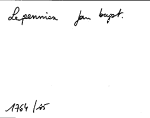 Lepennier jan bapt.
1764/15